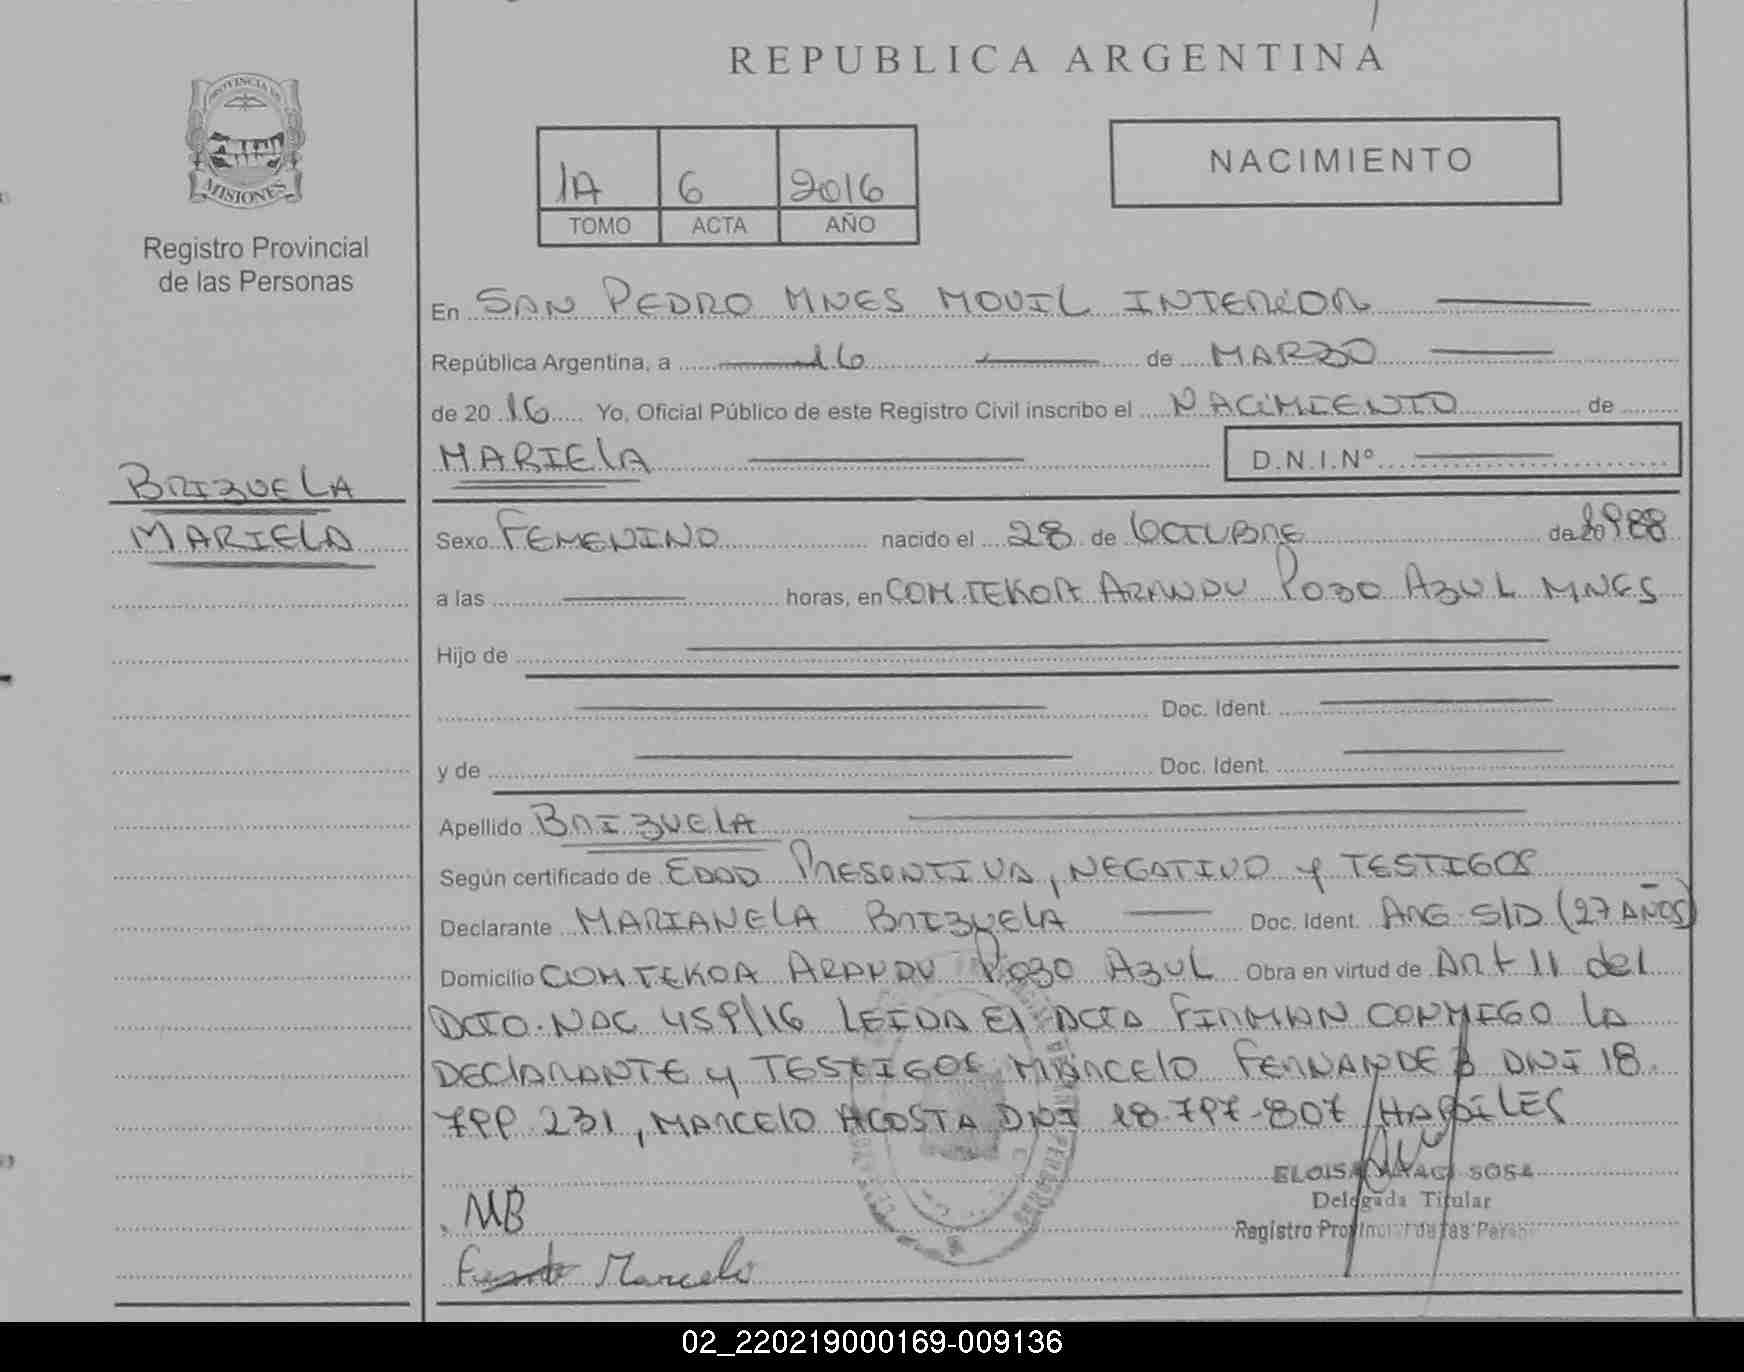 REPUBLICA ARGENTINA
PROVINCIA DE
MISIONES
Registro Provincial
de las Personas
1A 6 2016
TOMO ACTA AÑO
NACIMIENTO
En SAN PEDRO MNES MOVIL INTERIOR
República Argentina, a 16 de MARZO
de 20 16 Yo, Oficial Público de este Registro Civil inscribo el NACIMIENTO de
MARIELA D.N.I.Nº
BRIZUELA
MARIELA
Sexo FEMENINO nacido el 28 de OCTUBRE de 1988
a las horas, en COM.TEKOA ARANDU POZO AZUL MNES
Hijo de
Doc. Ident.
y de Doc. Ident.
Apellido BRIZUELA
Según certificado de EDAD PRESUNTIVA, NEGATIVO y TESTIGOS
Declarante MARIANELA BRIZUELA Doc. Ident. ARG S/D (27 AÑOS)
Domicilio COM.TEKOA ARANDU POZO AZUL Obra en virtud de ART 11 del
DCTO. NAC 459/16 LEIDA El ACTA FIRMAN CONMIGO LA
DEClARANTE y TESTIGOS MARCELO FERNANDEZ DNI 18.
799.231, MARCELO ACOSTA DNI 18.797.807 /HABILES
ELOISA SOSA
Delegada Titular
Registro Provincial de las Personas
MB
Marcelo
02_220219000169-009136